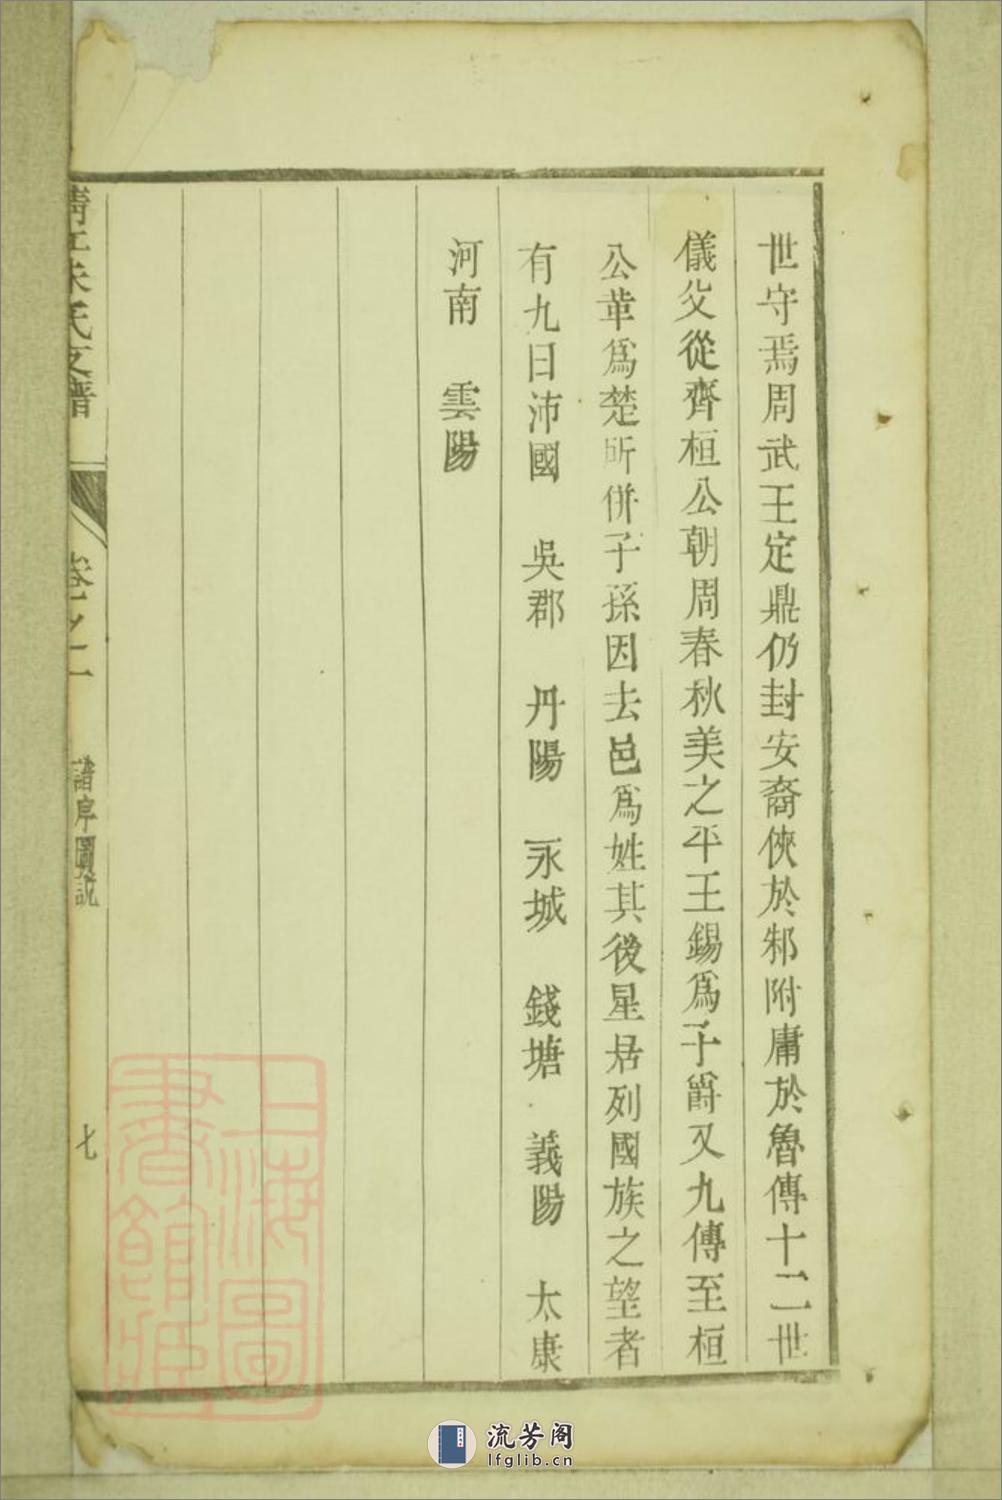 世守焉周武王定鼎仍封安裔俠於邾附庸於魯傳十二世
儀父從齊桓公朝周春秋美之平王錫爲子爵又九傳至桓
公革爲楚所併子孫因去邑爲姓其後星居列國族之望者
有九曰沛國 吳郡 丹陽 永城 錢塘 義陽 太康
河南 雲陽
朱氏支譜
卷之一
譜序圖說
七
上海圖書館藏
流芳阁
lfglib.cn